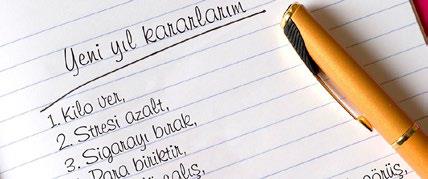 Yeni yıl kararlarım
1. Kilo ver,
2. Stresi azalt,
3. Sigarayı bırak,
Para biriktir,